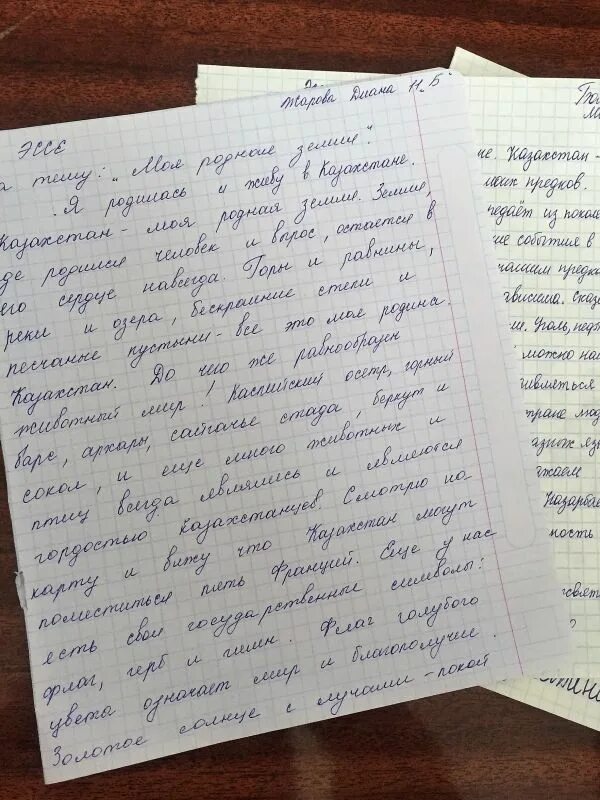 Жарова Диана 11 "Б"
ЭССЕ
а тему: "Моя родная земля".
Я родилась и живу в Казахстане.
Казахстан - моя родная земля. Земля,
где родился человек и вырос, остается в
его сердце навсегда. Горы и равнины,
реки и озера, бескрайние степи и
песчаные пустыни - все это моя родина.
Казахстан. До чего же разнообразен
животный мир! Каспийский осетр, горный
барс, архары, сайгачье стада, беркут и
сокол, и еще много животных и
птиц всегда являлись и являются
гордостью Казахстанцев. Смотрю на
карту и вижу что Казахстан могут
поместиться пять Франций. Еще у нас
есть свои государственные символы:
флаг, герб и гимн. Флаг голубого
цвета означает мир и благополучие.
Золотое солнце с лучами - покой
не. Казахстан -
моих предков.
события в
можно
Назарбае